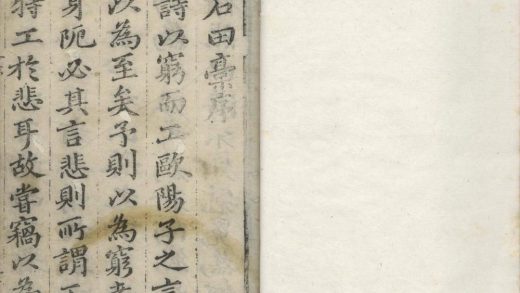 石田稾序
詩以窮而工歐陽子之言
以為至矣予則以為窮者
身阨必其言悲則所謂工
特工於悲耳故嘗竊以為